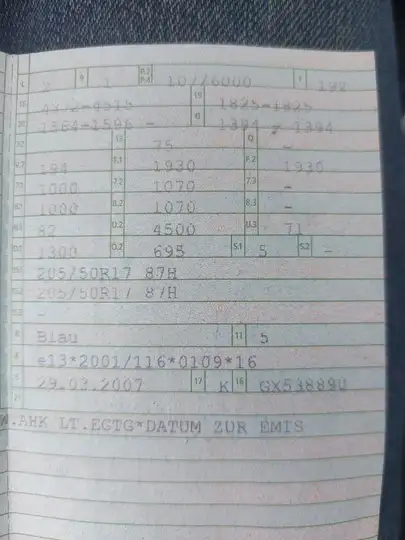 2 9 1 P.2 P.4 107/6000 T 192
19 1825-1825
1384-1596 - 1394 - 1394
13 75 Q -
194 8.1 1930 8.2 1930
1000 7.2 1070 7.3 -
1000 8.2 1070 8.3 -
82 U.2 4500 U.3 71
1300 O.2 695 S.1 5 S.2 -
205/50R17 87H
205/50R17 87H
-
Blau 11 5
e13*2001/116*0109*16
29.03.2007 17 K 16
.AHK LT.EGTG*DATUM ZUR EMIS